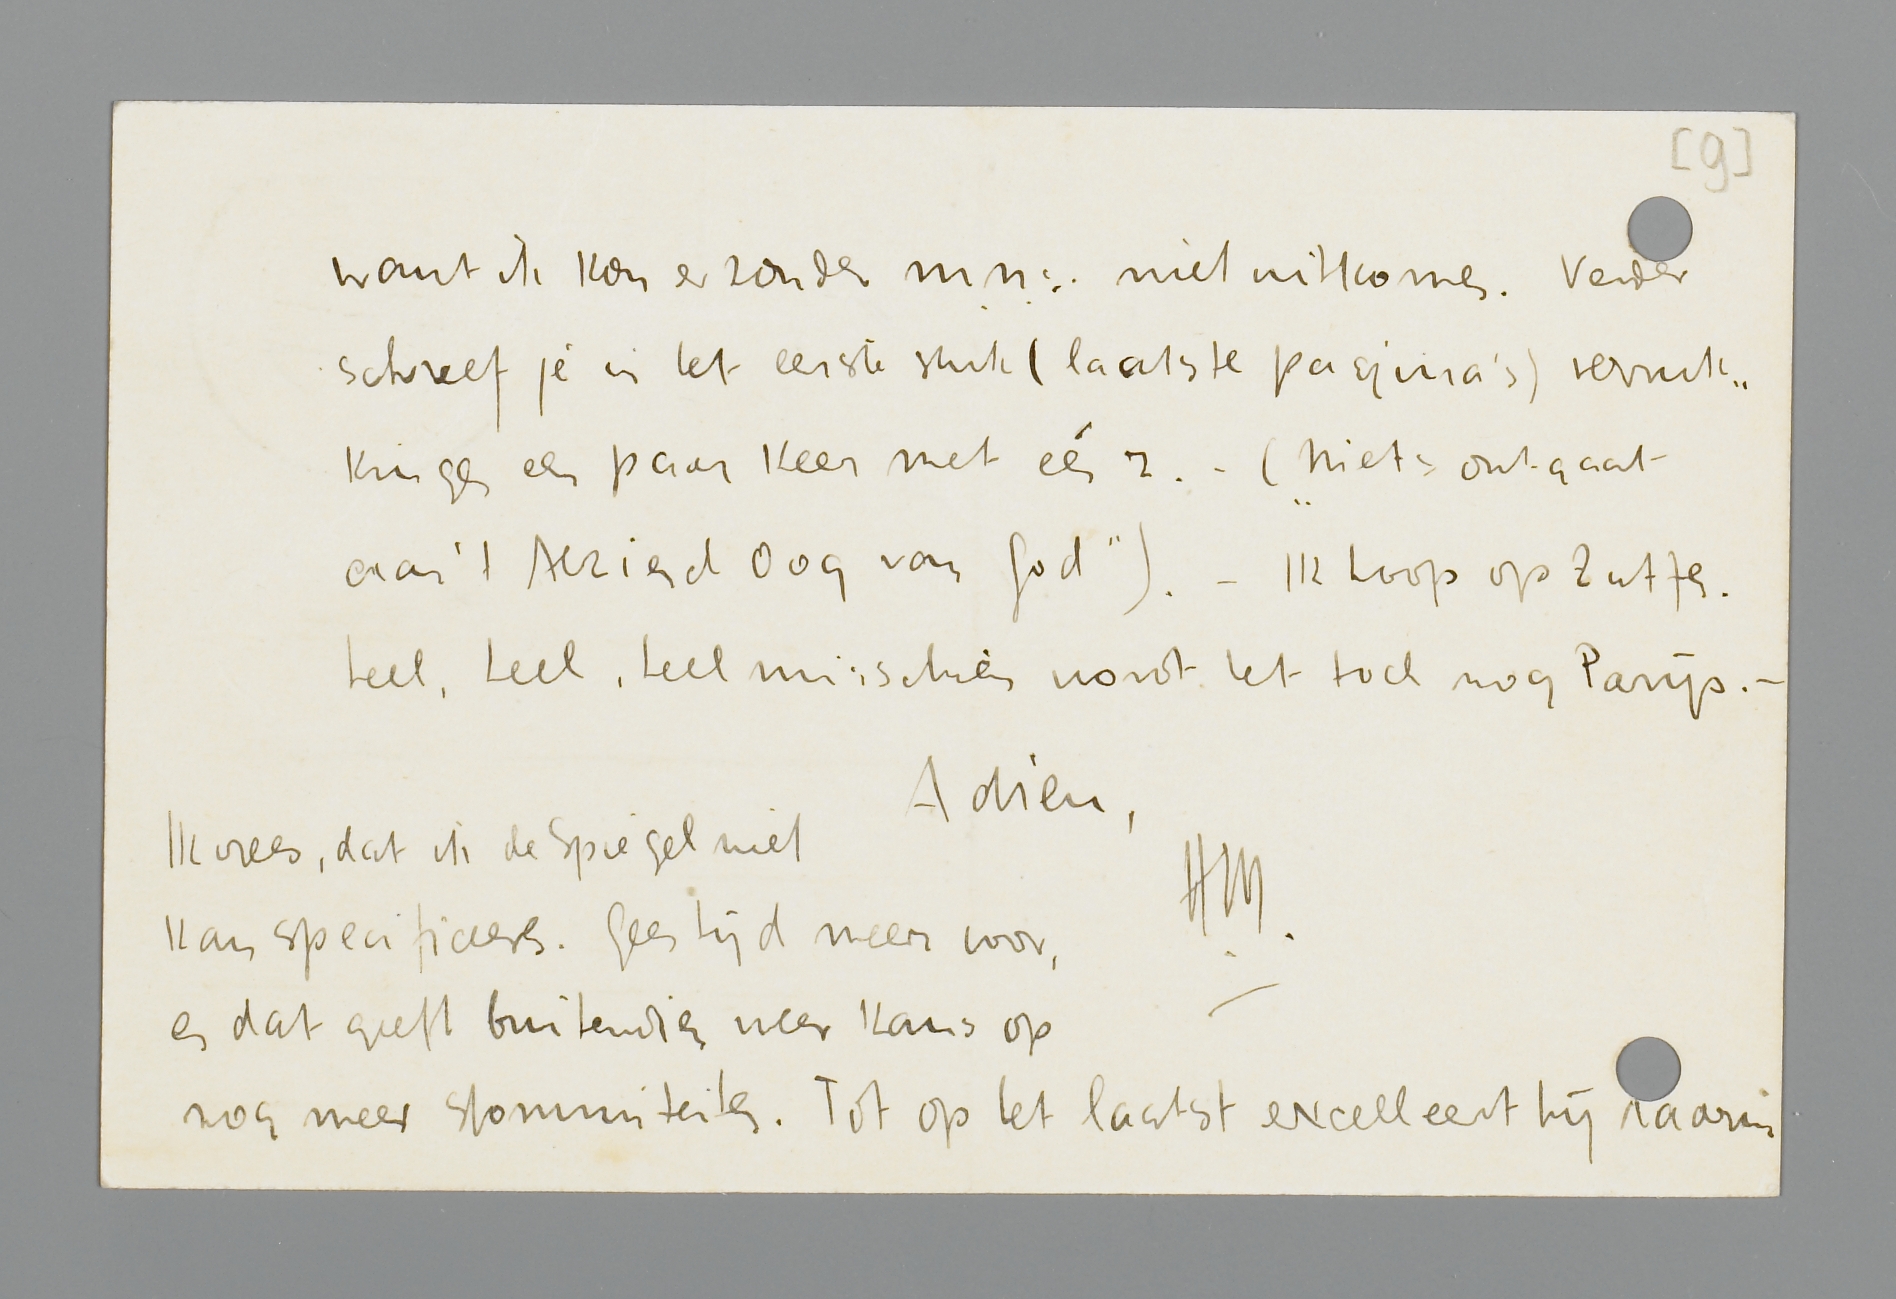 [9]
want ik kon er zonder m.n. niet uitkomen. Verder
schreef je in het eerste stuk (laatste pagina's) verruk„
kingen een paar keer met één r. - („Niets ontgaat
aan 't Alziend Oog van God"). - Ik hoop op Zutfen.
heel, heel, heel misschien wordt het toch nog Parijs. -
Adieu,
HM.
Ik vrees, dat ik de Spiegel niet
kan specificeren. Geen tijd meer voor,
en dat geeft buitendien weer kans op
nog meer stommiteiten. Tot op het laatst excelleert hij daarin